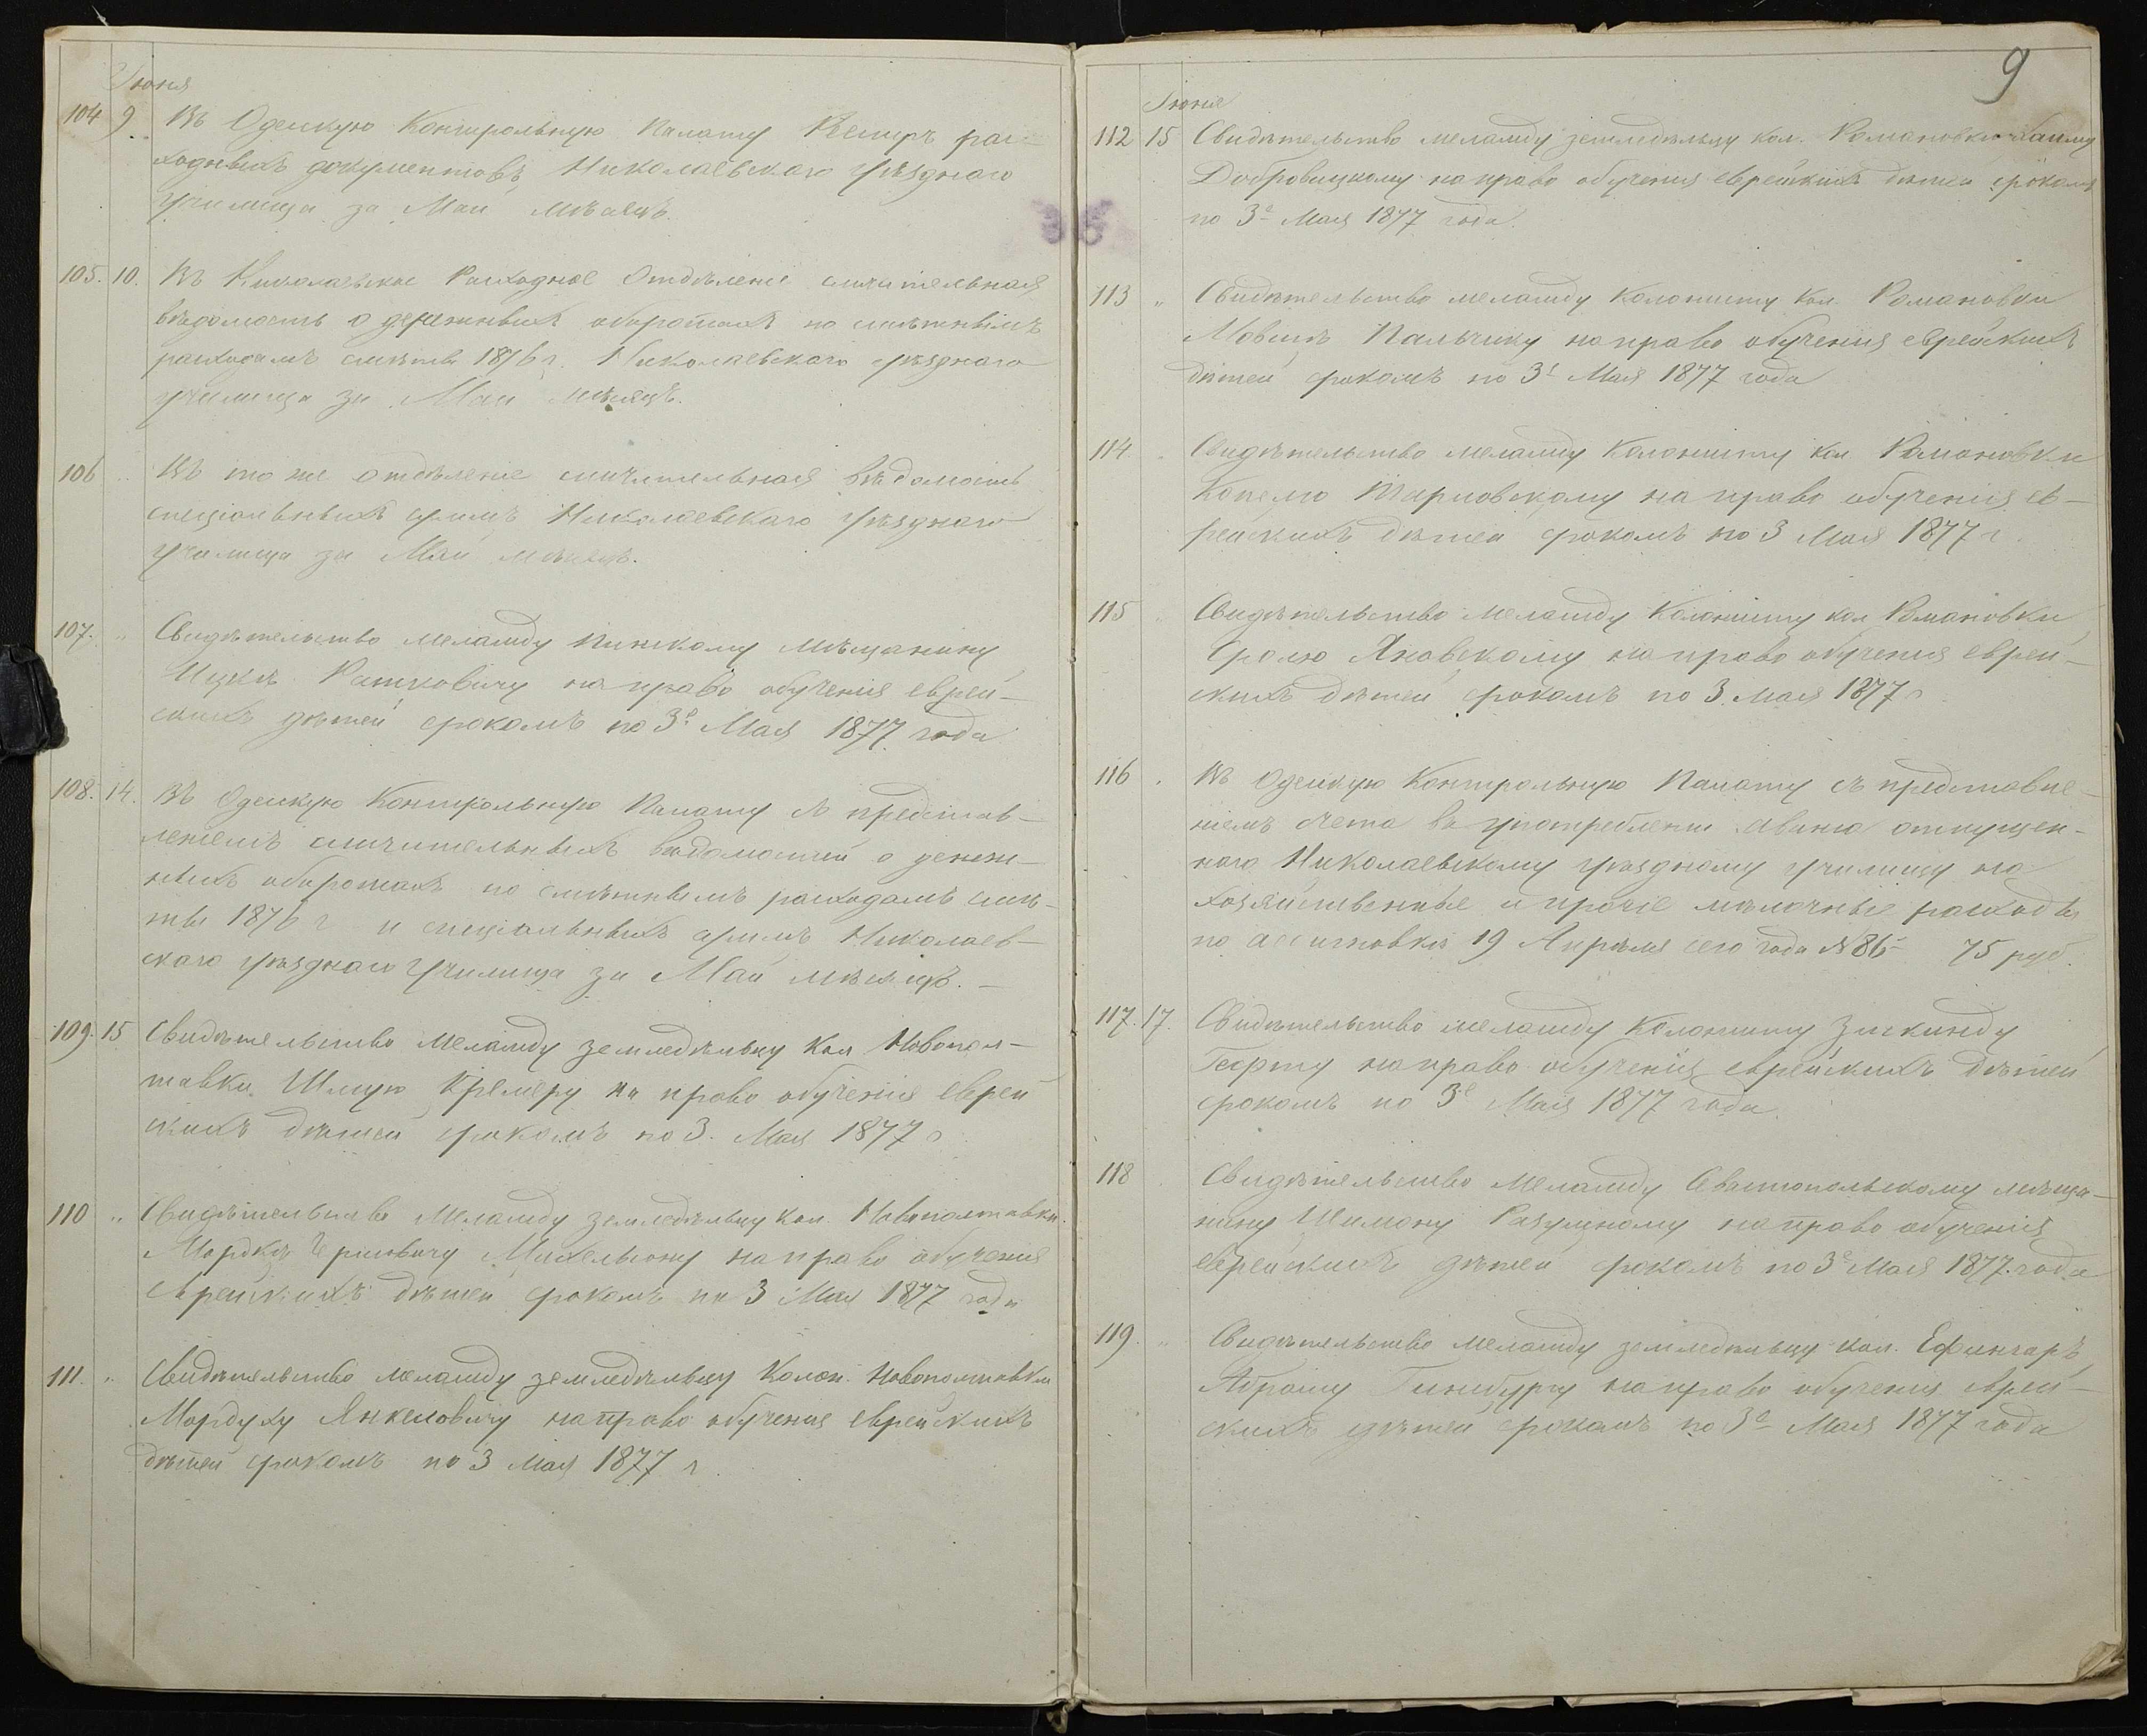 Іюня
104 9 Въ Одесскую Контрольную Палату Реестръ рас-
ходныхъ документовъ Николаевскаго уѣзднаго
училища за Май мѣсяцъ.
105. 10. Въ Николаевское Расходное Отдѣленіе сличительная
вѣдомость о денежныхъ оборотахъ по смѣтнымъ
расходамъ смѣты 1876 г. Николаевского уѣзднаго
училища за Май мѣсяцъ.
106 „ Въ то же отдѣленіе сличительная вѣдомость
спеціальныхъ суммъ Николаевскаго уѣзднаго
училища за Май мѣсяцъ.
107. „ Свидѣтельство меламду Пинскому мѣщанину
Ицкѣ Ратковичу на право обученія еврей-
скихъ дѣтей срокомъ по 3е Мая 1877 года
108. 14. Въ Одесскую Контрольную Палату съ представ-
леніемъ сличительныхъ вѣдомостей о денеж-
ныхъ оборотахъ по смѣтнымъ расходамъ смѣ-
ты 1876 г и спеціальныхъ суммъ Николаев-
скаго уѣзднаго училища за Май мѣсяцъ. —
109. 15 Свидѣтельство меламду земледѣльцу кол Новопол-
тавки Шлиую Кремеру на право обученія еврей
скихъ дѣтей срокомъ по 3. Мая 1877 г
110 „ Свидѣтельство меламду земледѣльцу кол. Новополтавки.
Мордкѣ Михельсону на право обученія
еврейскихъ дѣтей срокомъ по 3 Мая 1877 года
111. „ Свидѣтельство меламду земледѣльцу Колон. Новополтавки
Мордуху Янкеловичу на право обученія еврейскихъ
дѣтей срокомъ по 3 Мая 1877 г.
9
Іюня
112 15 Свидѣтельство меламду земледѣльцу кол. Романовки Хаиму
Добровицкому на право обученія еврейскихъ дѣтей срокомъ
по 3е Мая 1877 года.
113 „ Свидѣтельство меламду Колонисту Кол. Романовки
Мовшѣ Пальчику на право обученія еврейскихъ
дѣтей срокомъ по 3е Мая 1877 года
114 „ Свидѣтельство меламду Колонисту кол Романовки
Копелю Тарловскому на право обученія ев-
рейскихъ дѣтей срокомъ по 3 Мая 1877 г.
115 „ Свидѣтельство меламду Колонисту кол Романовки
Сролю Яновскому на право обученія еврей-
скихъ дѣтей срокомъ по 3. Мая 1877 г
116 „ Въ Одесскую Контрольную Палату съ представле-
ніемъ счета въ употребленіи аванса отпущен-
наго Николаевскому уѣздному училищу на
хозяйственные и прочіе мѣлочные расходы
по ассигновкѣ 19 Апрѣля сего года № 86 75 руб.
117. 17. Свидѣтельство меламду Колонисту Зискинду
на право обученія еврейскихъ дѣтей
срокомъ по 3е Мая 1877 года.
118 „ Свидѣтельство меламду Севастопольскому мѣща-
нину Шимону Разумному на право обученія
еврейскихъ дѣтей срокомъ по 3е Мая 1877 года
119 „ Свидѣтельство меламду земледѣльцу кол. Ефингаръ
Абраму Гинзбургу на право обученія еврей-
скихъ дѣтей срокомъ по 3е Мая 1877 года